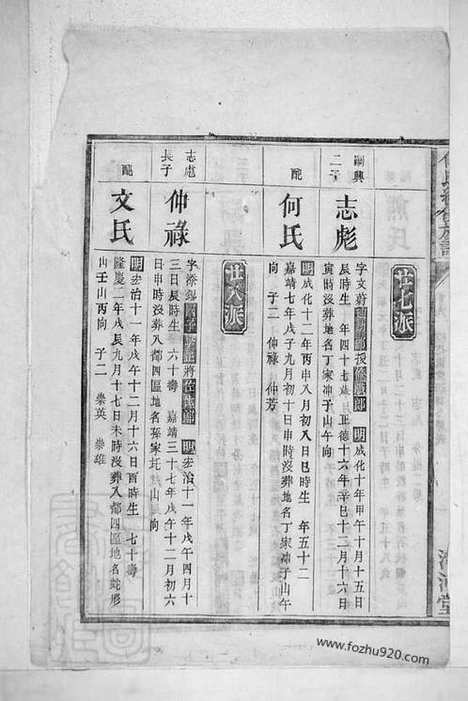 廿七派
嗣興
二子
志彪
字文蔚 授 明成化十年甲午十月十五日
辰時生 年四十七歲 正德十六年辛巳十二月十六日
寅時沒葬地名丁家冲子山午向
配
何氏
明成化十二年丙申八月初八日巳時生 年五十二
嘉靖七年戊子九月初十日申時沒葬地名丁家冲子山午
向 子二 仲祿 仲芳
廿八派
志彪
長子
仲祿
字 將 明宏治十一年戊午四月十
三日辰時生 六十壽 嘉靖三十七年戊午十二月初六
日申時沒葬八都四區地名孫家 山 向
配
文氏
明宏治十一年戊午十二月十六日酉時生 七十壽
隆慶二年戊辰九月十七日未時沒葬八都四區地名蛇形
山壬山丙向 子二 崇英 崇雄
www.fozhu920.com